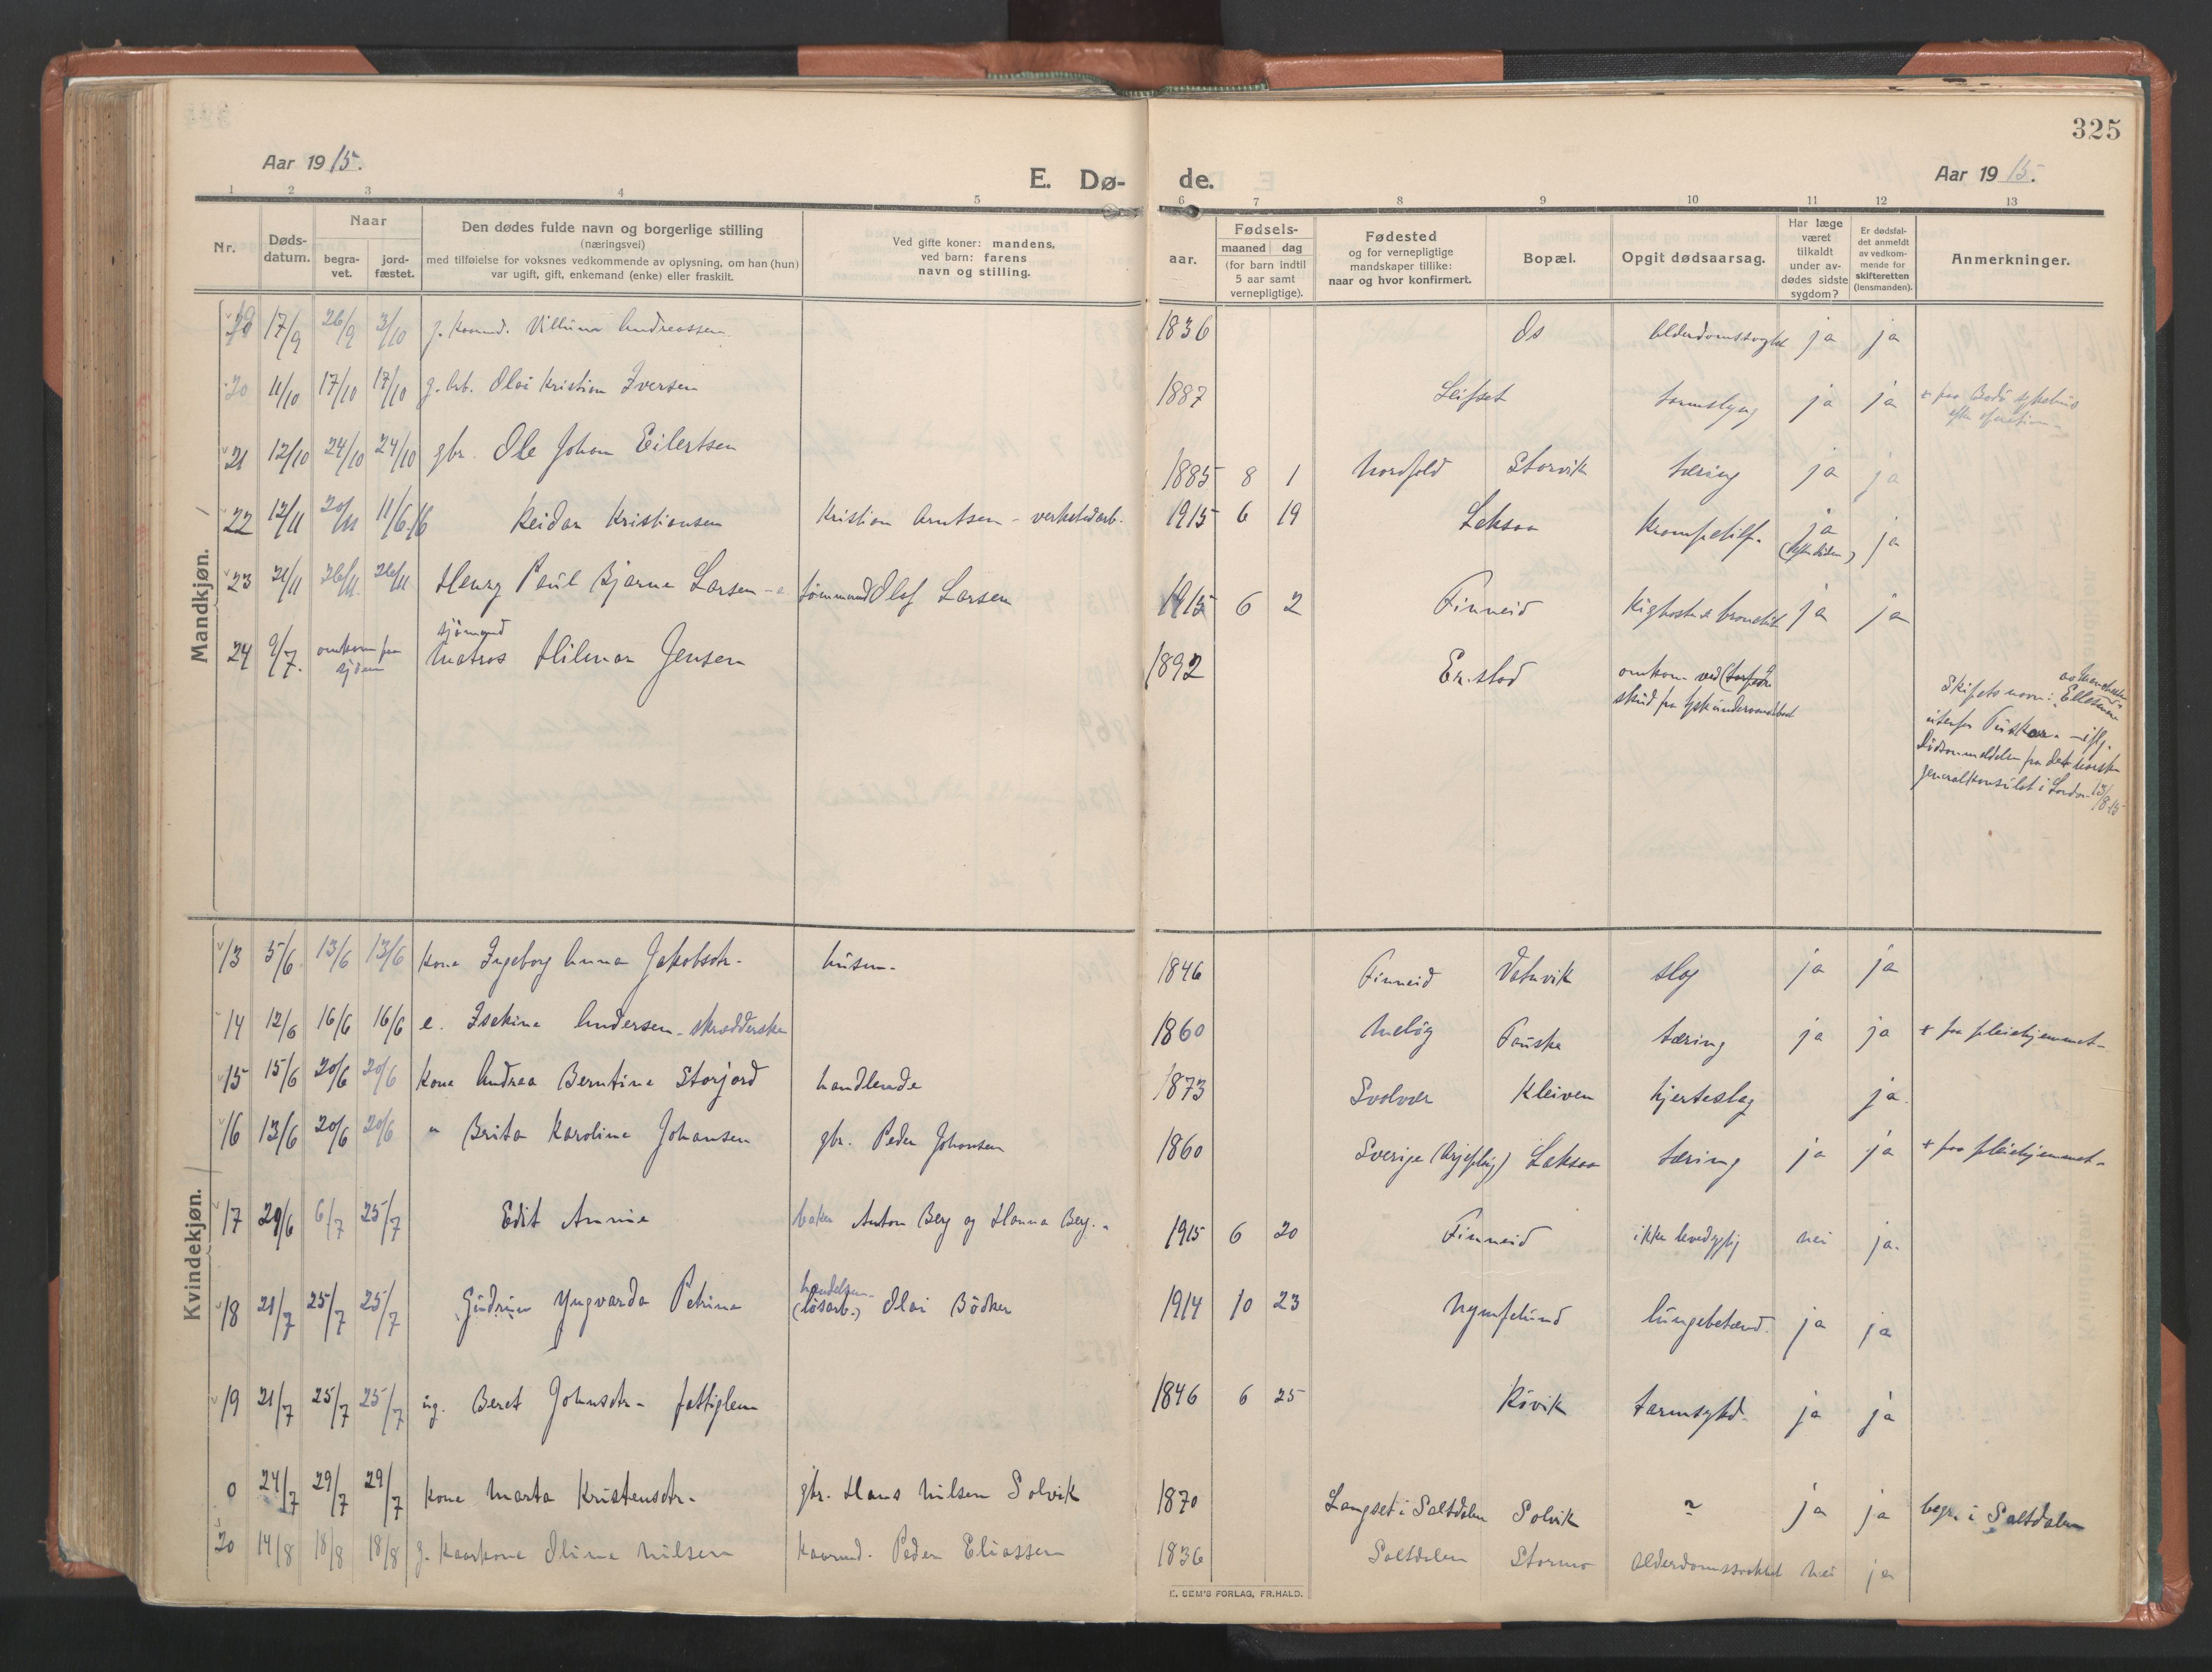 325
Aar 1915.
E. Dø-
de.
Aar 1915.
1 2 3 4 5 6 7 8 9 10 11 12 13
Nr.
Døds-
datum.
Naar
begra-
vet.
jord-
fæstet.
Den dødes fulde navn og borgerlige stilling
(næringsvei)
med tilføielse for voksnes vedkommende av oplysning, om han (hun)
var ugift, gift, enkemand (enke) eller fraskilt.
Ved gifte koner: mandens,
ved barn: farens
navn og stilling.
aar.
Fødsels-
maaned dag
(for barn indtil
5 aar samt
vernepligtige).
Fødested
og for vernepligtige
mandskaper tillike:
naar og hvor konfirmert.
Bopæl.
Opgit dødsaarsag.
Har læge
været
tilkaldt
under av-
dødes sidste
sygdom?
Er dødsfal-
det anmeldt
av vedkom-
mende for
skifteretten
(lensmanden).
Anmerkninger.
Mandkjøn.
17/9 26/9 3/10 g. kaarmd. Andreassen 1836 Os ja ja
20 11/10 17/10 17/10 g. arb. Olai Kristian Iversen 1887 Leifset ja ja + paa Bodø sykehus
21 12/10 24/10 24/10 gbr. Ole Johan Eilertsen 1885 8 1 Nordfold Storvik tæring ja ja
22 12/11 20/11 11/6 16 Reidar Kristiansen Kristian Arntsen - verkstedarb. 1915 6 19 Laksaa ja ja
23 21/11 26/11 26/11 Henry Paul Bjarne Larsen tømmermand Olaf Larsen 1915 6 2 Finneid Kighoste & bronchit ja ja
24 9/7. omkom paa
sjøen
sjømand
Matros Hilmar Jensen 1892 Erstad omkom ved (torpedo
skud fra tysk undervandsbaat
Skipets navn: "Ellesmere"
av Manchester
utenfor
dødsanmeldelse fra det norske
generalkonsulat i London 13/8 15
Kvindekjøn.
13 5/6 13/6 13/6 kone Ingeborg Anna Jakobsdtr. husm. 1846 Finneid Vatnvik slag ja ja
14 12/6 16/6 16/6 e. Isekine Andersen - skrædderske 1860 Meløy Fauske tæring ja ja + paa pleiehjemmet.
15 15/6 20/6 20/6 kone Andrea Berntine Storjord handlende 1873 Svolvær Kleiven hjerteslag ja.
16 13/6 20/6 20/6 " Brita Karoline Johansen gbr. Peder Johansen 1860 Sverige (Arjeplog) Laksaa tæring ja ja + paa pleiehjemmet.
17 29/6 6/7 25/7 Edit Annie baker Anton Berg og Hanna Berg. 1915 6 20 Finneid ikke levedygtig nei ja.
18 21/7 25/7 25/7 Gudrun Yngvarda Petrine handelsm.
(løsarb.) Olai Bødker 1914 10 23 Nymfelund lungebetænd. ja ja
19 21/7 25/7 25/7 ug. Beret Johnsdtr. fattiglem 1846 6 25 Røvik tarmsykd. ja ja
0 24/7 29/7 29/7 kone Marta Kristensdtr. gbr. Hans Nilsen Solvik 1870 Langset i Saltdalen Solvik ? ja ja begr. i Saltdalen
20 14/8 18/8 18/8 g. kaarkone Oline Nilsen kaarmd. Peder Eliassen 1836 Saltdalen Stormo Alderdomssvakhet nei ja
E. SEM'S FORLAG, FR.HALD.